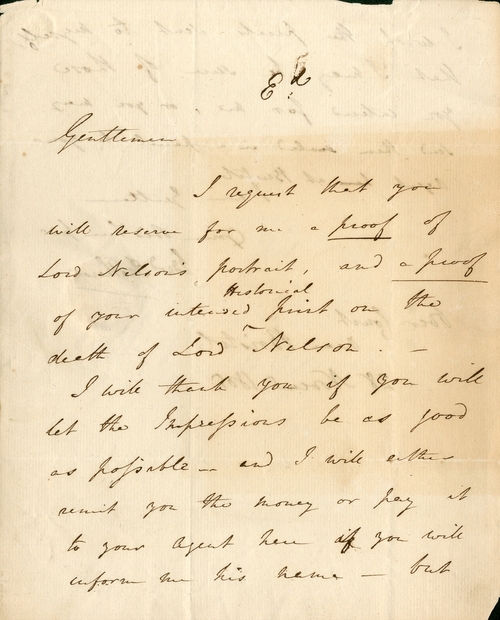 Ed
Gentlemen
I request that you
will reserve for me a proof of
Lord Nelson's portrait, and a proof
Historical
of your intended print on the
death of Lord Nelson. —
I will thank you if you will
let the Impressions be as good
as possible — and I will either
remit you the money or pay it
to your agent here if you will
inform me his name — but